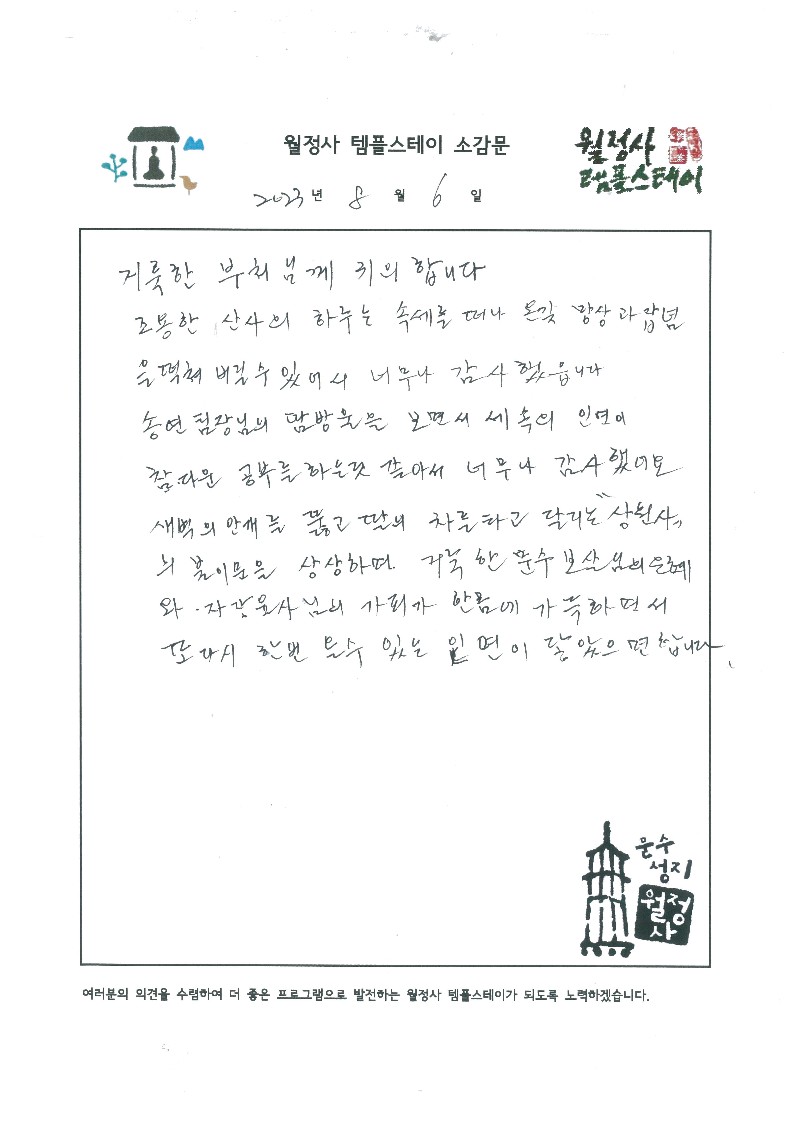 월정사 템플스테이 소감문
월정사
템플스테이
2023년 8월 6일
거룩한 부처님께 귀의합니다
조용한 산사의 하루는 속세를 떠나 온갖 망상과 잡념
을 떨쳐 버릴수 있어서 너무나 감사했읍니다
송연팀장님의 땀방울을 보면서 세속의 인연이
참다운 공부를하는것 같아서 너무나 감사했어요
새벽의 안개를 뚫고 딸의 차를타고 달리는 "상원사"
의 불이문을 상상하며. 거룩한 문수보살님의은혜
와 자장율사님의 가피가 한몸에 가득하면서
또다시 한번 올수 있는 인연이 닿았으면합니다.
문수
성지
월정
사
여러분의 의견을 수렴하여 더 좋은 프로그램으로 발전하는 월정사 템플스테이가 되도록 노력하겠습니다.